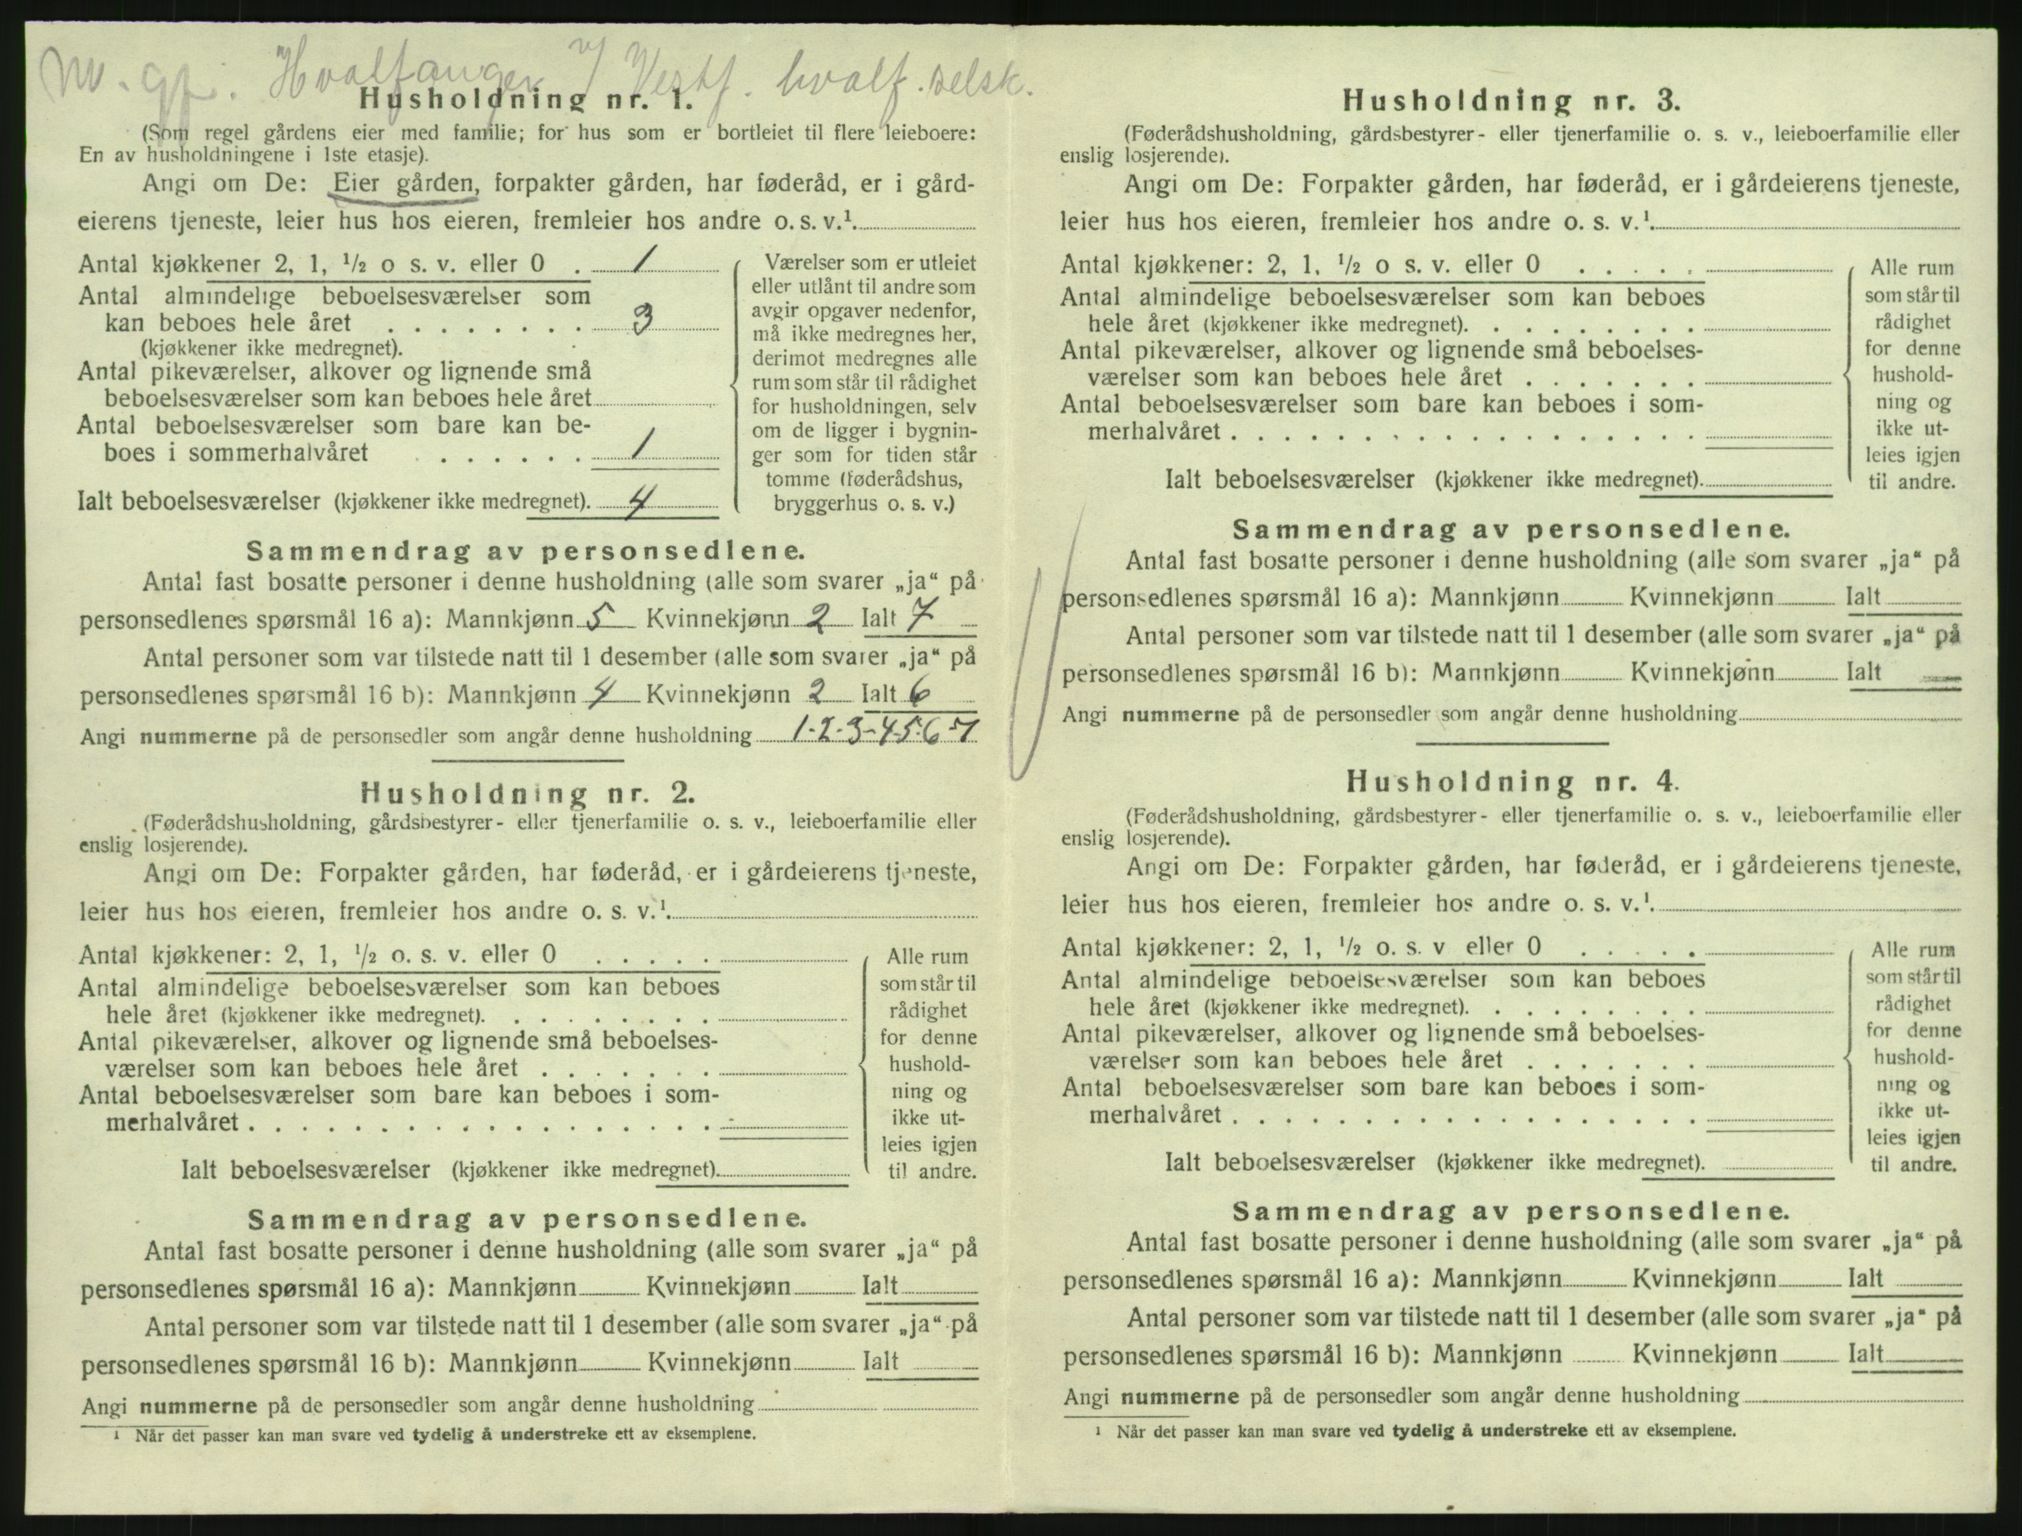 m. gf. Hvalfanger v/ Vestf. hvalf. selsk.
Husholdning nr. 1.
(Som regel gårdens eier med familie; for hus som er bortleiet til flere leieboere:
En av husholdningene i 1ste etasje).
Angi om De: Eier gården, forpakter gården, har føderåd, er i gård-
eierens tjeneste, leier hus hos eieren, fremleier hos andre o. s. v.¹
Antal kjøkkener 2, 1, ½ o s. v. eller 0 . 1
Antal almindelige beboelsesværelser som
kan beboes hele året . . . . . . . . 3
(kjøkkener ikke medregnet).
Antal pikeværelser, alkover og lignende små
beboelsesværelser som kan beboes hele året
Antal beboelsesværelser som bare kan be-
boes i sommerhalvåret . . . . . . 1
Ialt beboelsesværelser (kjøkkener ikke medregnet). 4
Værelser som er utleiet
eller utlånt til andre som
avgir opgaver nedenfor,
må ikke medregnes her,
derimot medregnes alle
rum som står til rådighet
for husholdningen, selv
om de ligger i bygnin-
ger som for tiden står
tomme (føderådshus,
bryggerhus o. s. v.)
Sammendrag av personsedlene.
Antal fast bosatte personer i denne husholdning (alle som svarer „ja“ på
personsedlenes spørsmål 16 a): Mannkjønn 5 Kvinnekjønn 2 Ialt 7
Antal personer som var tilstede natt til 1 desember (alle som svarer „ja“ på
personsedlenes spørsmål 16 b): Mannkjønn 4 Kvinnekjønn 2 Ialt 6
Angi nummerne på de personsedler som angår denne husholdning 1-2-3-4-5-6-7
Husholdning nr. 2.
(Føderådshusholdning, gårdsbestyrer- eller tjenerfamilie o. s. v., leieboerfamilie eller
enslig losjerende).
Angi om De: Forpakter gården, har føderåd, er i gårdeierens tjeneste,
leier hus hos eieren, fremleier hos andre o. s. v.¹.
Antal kjøkkener: 2, 1, ½ o. s. v. eller 0 . . . . .
Antal almindelige beboelsesværelser som kan beboes
hele året (kjøkkener ikke medregnet). . . . . . . . .
Antal pikeværelser, alkover og lignende små beboelses-
værelser som kan beboes hele året . . . . . . .
Antal beboelsesværelser som bare kan beboes i som-
merhalvåret . . . . . . . . . . . . . . . . . .
Ialt beboelsesværelser (kjøkkener ikke medregnet).
Alle rum
som står til
rådighet
for denne
hushold-
ning og
ikke ut-
leies igjen
til andre.
Sammendrag av personsedlene.
Antal fast bosatte personer i denne husholdning (alle som svarer „ja“ på
personsedlenes spørsmål 16 a): Mannkjønn Kvinnekjønn Ialt
Antal personer som var tilstede natt til 1 desember (alle som svarer „ja“ på
personsedlenes spørsmål 16 b): Mannkjønn Kvinnekjønn Ialt
Angi nummerne på de personsedler som angår denne husholdning
¹ Når det passer kan man svare ved tydelig å understreke ett av eksemplene.
Husholdning nr. 3.
(Føderådshusholdning, gårdsbestyrer- eller tjenerfamilie o. s. v., leieboerfamilie eller
enslig losjerende).
Angi om De: Forpakter gården, har føderåd, er i gårdeierens tjeneste,
leier hus hos eieren, fremleier hos andre o. s. v.¹.
Antal kjøkkener: 2, 1, ½ o s. v. eller 0 . . . . .
Antal almindelige beboelsesværelser som kan beboes
hele året (kjøkkener ikke medregnet). . . . . . . . .
Antal pikeværelser, alkover og lignende små beboelses-
værelser som kan beboes hele året . . . . . . .
Antal beboelsesværelser som bare kan beboes i som-
merhalvåret . . . . . . . . . . . . . . . . . .
Ialt beboelsesværelser (kjøkkener ikke medregnet).
Alle rum
som står til
rådighet
for denne
hushold-
ning og
ikke ut-
leies igjen
til andre.
Sammendrag av personsedlene.
Antal fast bosatte personer i denne husholdning (alle som svarer „ja“ på
personsedlenes spørsmål 16 a): Mannkjønn Kvinnekjønn Ialt
Antal personer som var tilstede natt til 1 desember (alle som svarer „ja“ på
personsedlenes spørsmål 16 b): Mannkjønn Kvinnekjønn Ialt
Angi nummerne på de personsedler som angår denne husholdning
Husholdning nr. 4.
(Føderådshusholdning, gårdsbestyrer- eller tjenerfamilie o. s. v., leieboerfamilie eller
enslig losjerende).
Angi om De: Forpakter gården, har føderåd, er i gårdeierens tjeneste,
leier hus hos eieren, fremleier hos andre o. s. v.¹.
Antal kjøkkener: 2, 1, ½ o. s. v eller 0 . . . . .
Antal almindelige beboelsesværelser som kan beboes
hele året (kjøkkener ikke medregnet). . . . . . . . .
Antal pikeværelser, alkover og lignende små beboelses-
værelser som kan beboes hele året . . . . . . .
Antal beboelsesværelser som bare kan beboes i som-
merhalvåret . . . . . . . . . . . . . . . . . .
Ialt beboelsesværelser (kjøkkener ikke medregnet).
Alle rum
som står til
rådighet
for denne
hushold-
ning og
ikke ut-
leies igjen
til andre.
Sammendrag av personsedlene.
Antal fast bosatte personer i denne husholdning (alle som svarer „ja“ på
personsedlenes spørsmål 16 a): Mannkjønn Kvinnekjønn Ialt
Antal personer som var tilstede natt til 1 desember (alle som svarer „ja“ på
personsedlenes spørsmål 16 b): Mannkjønn Kvinnekjønn Ialt
Angi nummerne på de personsedler som angår denne husholdning
¹ Når det passer kan man svare ved tydelig å understreke ett av eksemplene.